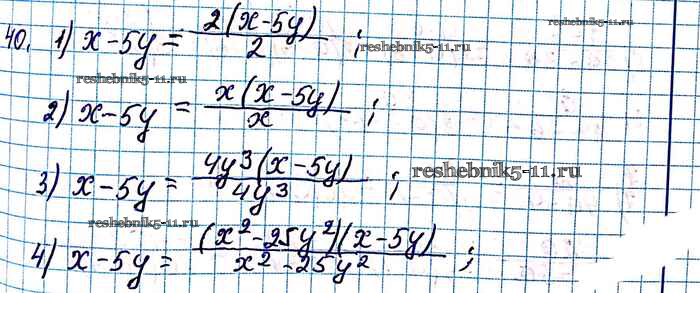 reshebnik5-11.ru
40. 1) x-5y = 2(x-5y)/2 ;
reshebnik5-11.ru
reshebnik5-11.ru
2) x-5y = x(x-5y)/x ;
3) x-5y = 4y³(x-5y)/4y³ ;
reshebnik5-11.ru
reshebnik5-11.ru
4) x-5y = (x²-25y²)(x-5y)/x²-25y² ;